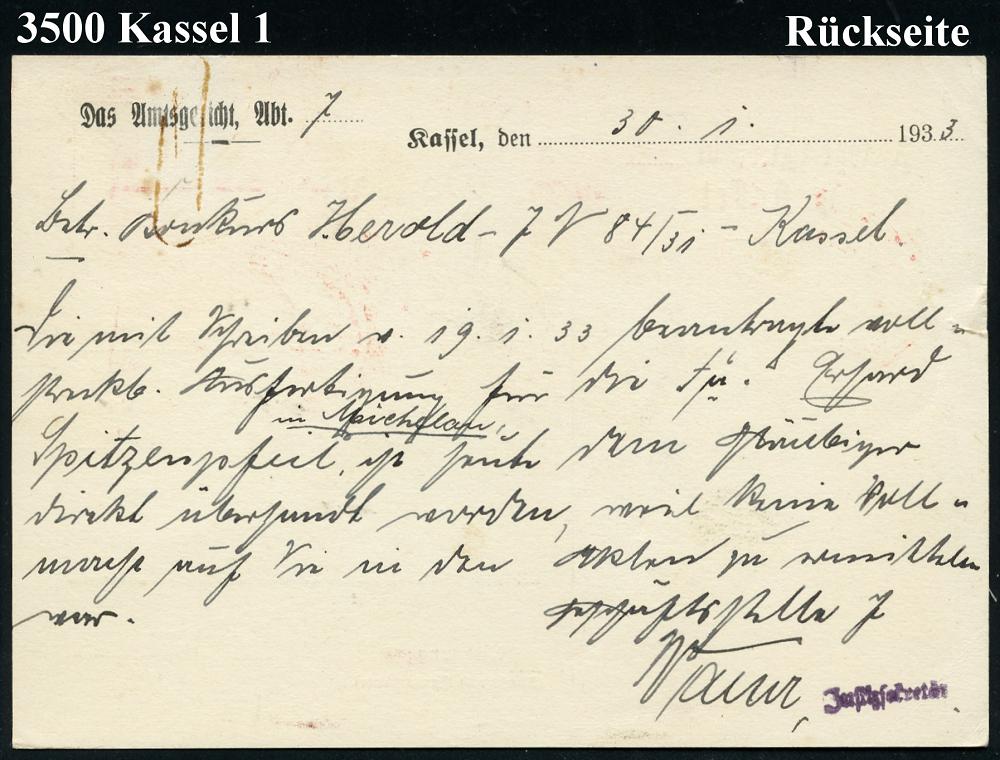 3500 Kassel 1
Rückseite
Das Amtsgericht, Abt. 7
Kassel, den 30. 1. 1933
Betr. Konkurs Herold - 7 N 84/31 - Kassel.
Die mit Schreiben v. 19. 1. 33 beantragte voll-
streckb. Ausfertigung für die Fa. Erhard
in Michelau,
Spitzenpfeil, ist heute dem Gläubiger
direkt übersandt worden, weil keine Voll-
macht auf Sie in den Akten zu ermitteln
war.
Geschäftsstelle 7
Justizsekretär